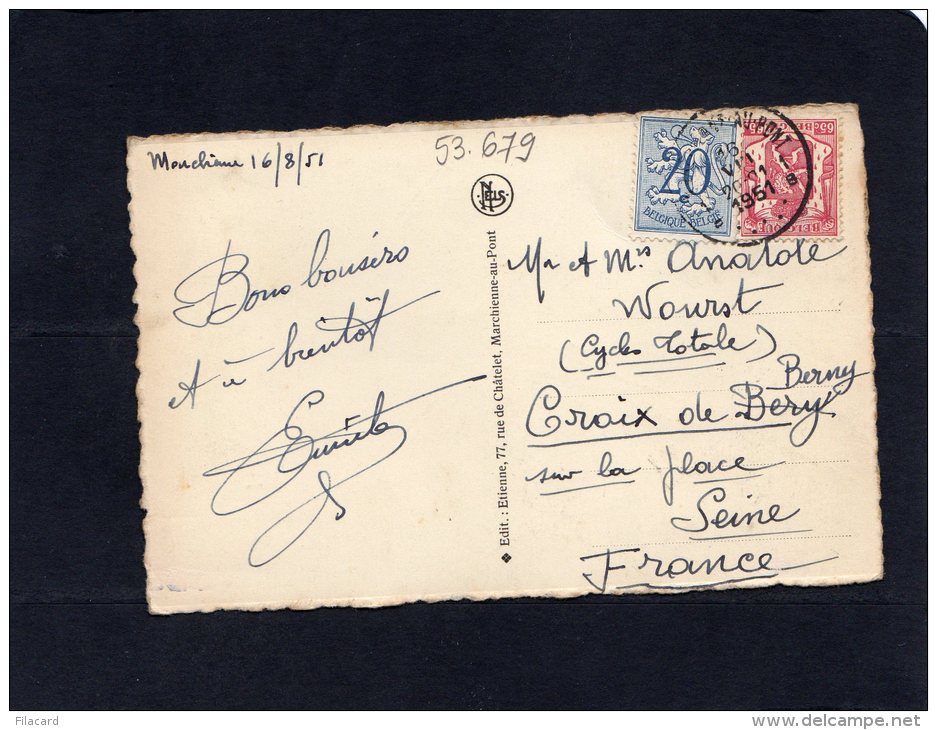 16/8/51
53.679
NELS
Bons baisers
et à bientôt
Edit. : Etienne, 77, rue de Châtelet, Marchienne-au-Pont
20
c
BELGIQUE BELGIË
65c
AU-PONT
VIII
20-21
1951
B
Mr et Mrs Anatole
Wourst
(Cycles Totale)
Berny
Croix de Bery
sur la place
Seine
France
Filacard
www.delcampe.net